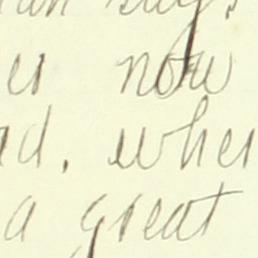 say.
er now
d. when
a great